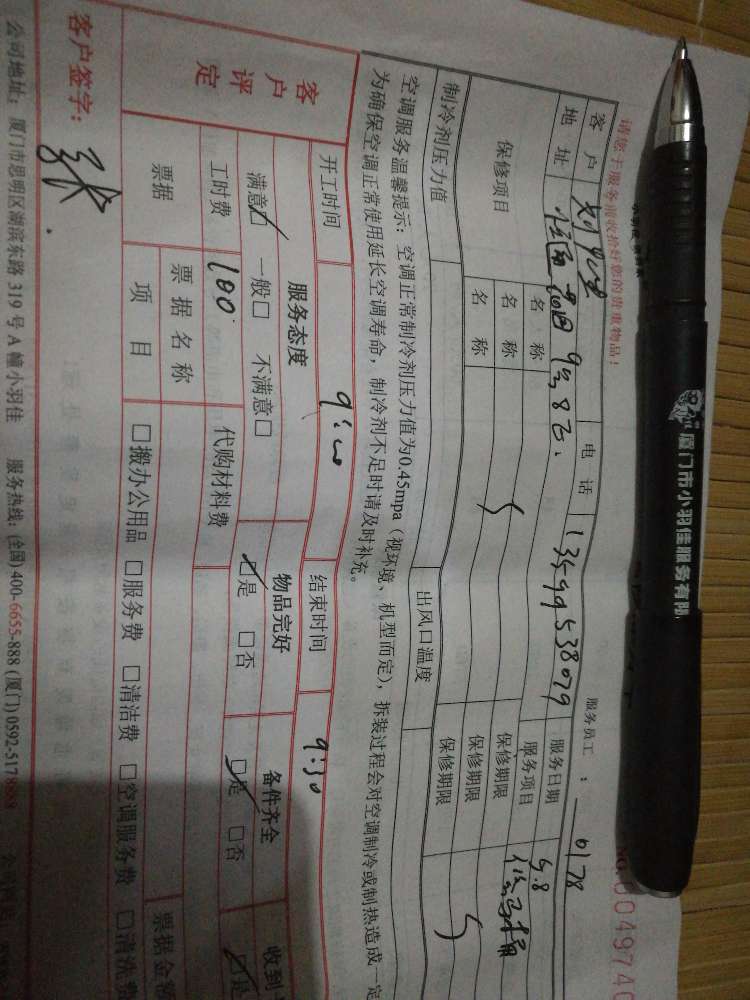 请您于服务前收拾好您的贵重物品！
服务员工：0178
No.0049740
客户 电话 13599538079 服务日期 5.8
地址 9号8乙 服务项目
保修项目 名称 保修期限
名称 保修期限
名称 保修期限
制冷剂压力值 出风口温度
空调服务温馨提示：空调正常制冷剂压力值为0.45mpa（视环境、机型而定），拆装过程会对空调制冷或制热造成一定
为确保空调正常使用延长空调寿命，制冷剂不足时请及时补充。
客户评定
开工时间 9:00 结束时间 9:30
服务态度 物品完好 备件齐全 收到
满意☑ 一般□ 不满意□ ☑是 □否 ☑是 □否 ☑是
工时费 100 代购材料费
票据 票据名称 票据金额
项目 □搬办公用品 □服务费 □清洁费 □空调服务费 □清洗费
客户签字：张
公司地址：厦门市思明区湖滨东路319号A幢小羽佳 服务热线：(全国)400-6655-888 (厦门)0592-517888
厦门市小羽佳服务有限